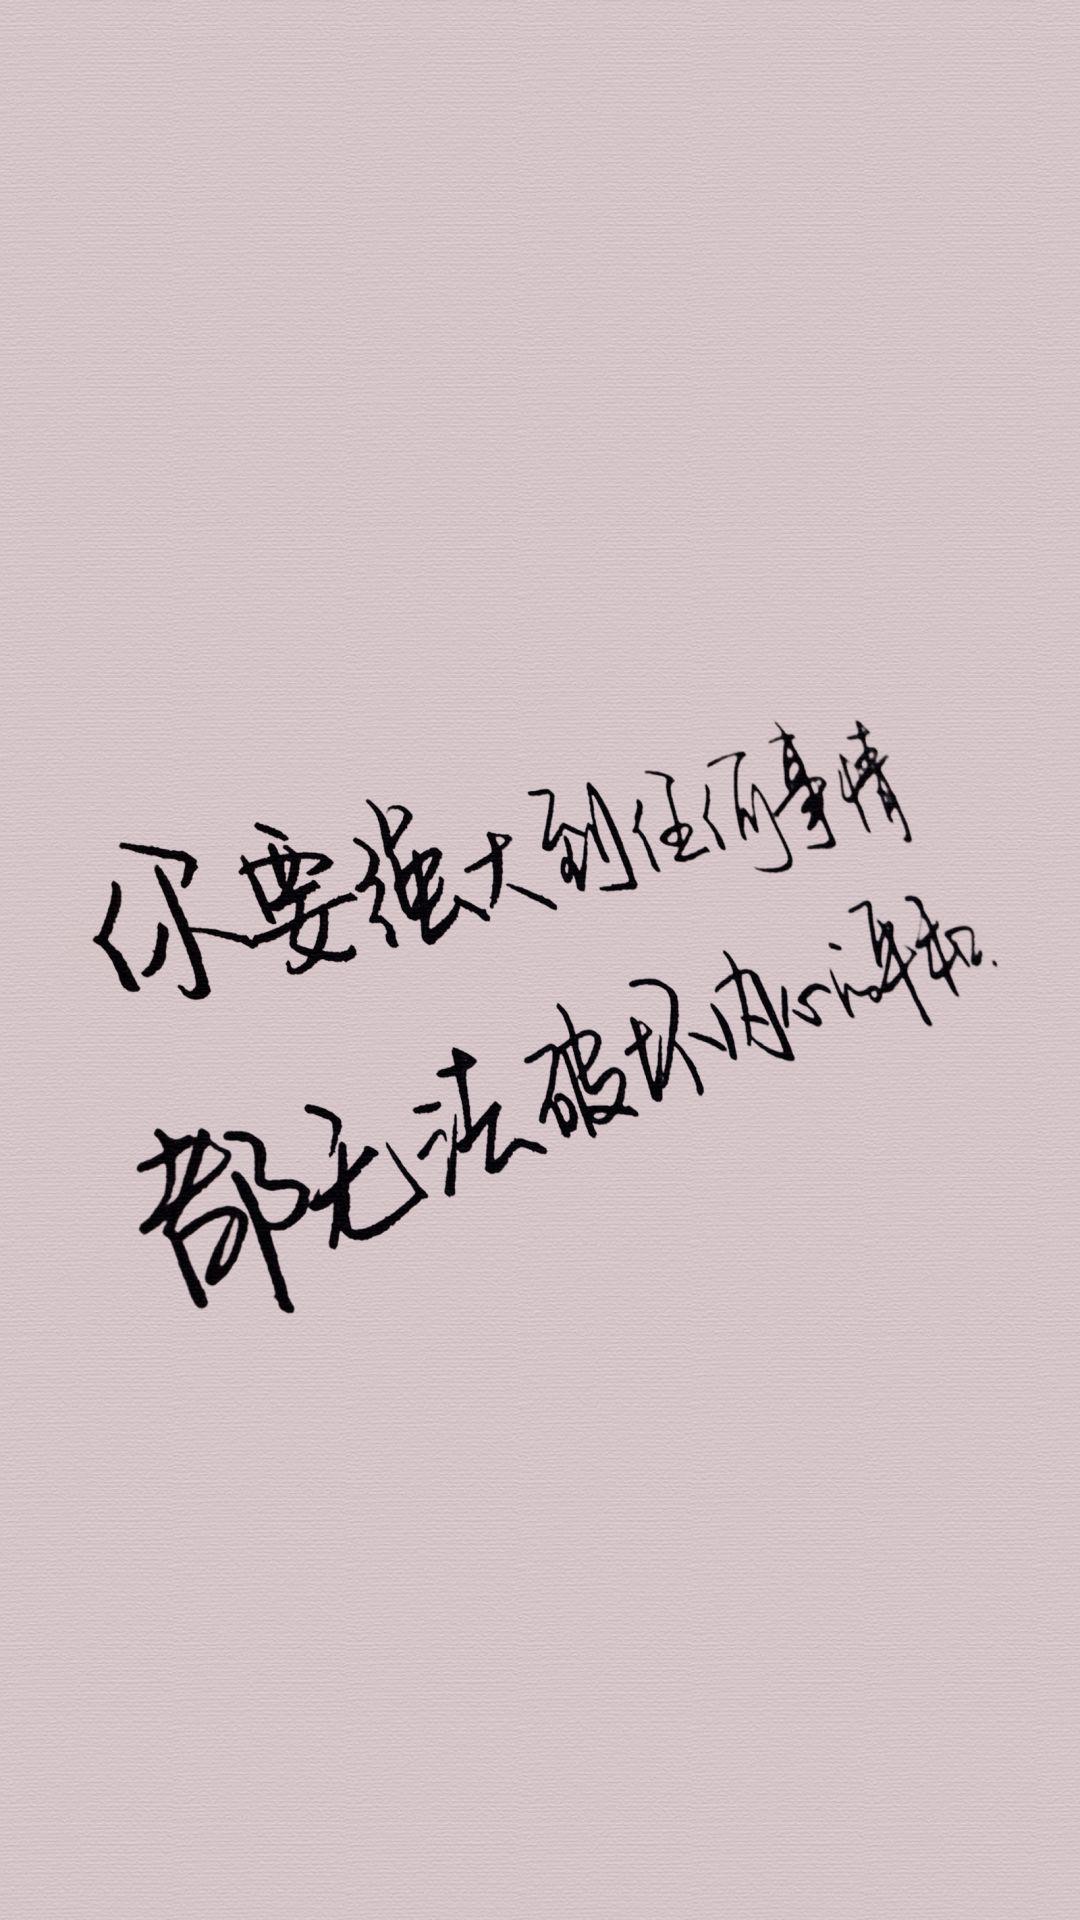 你要强大到任何事情
都无法破坏内心的平和.